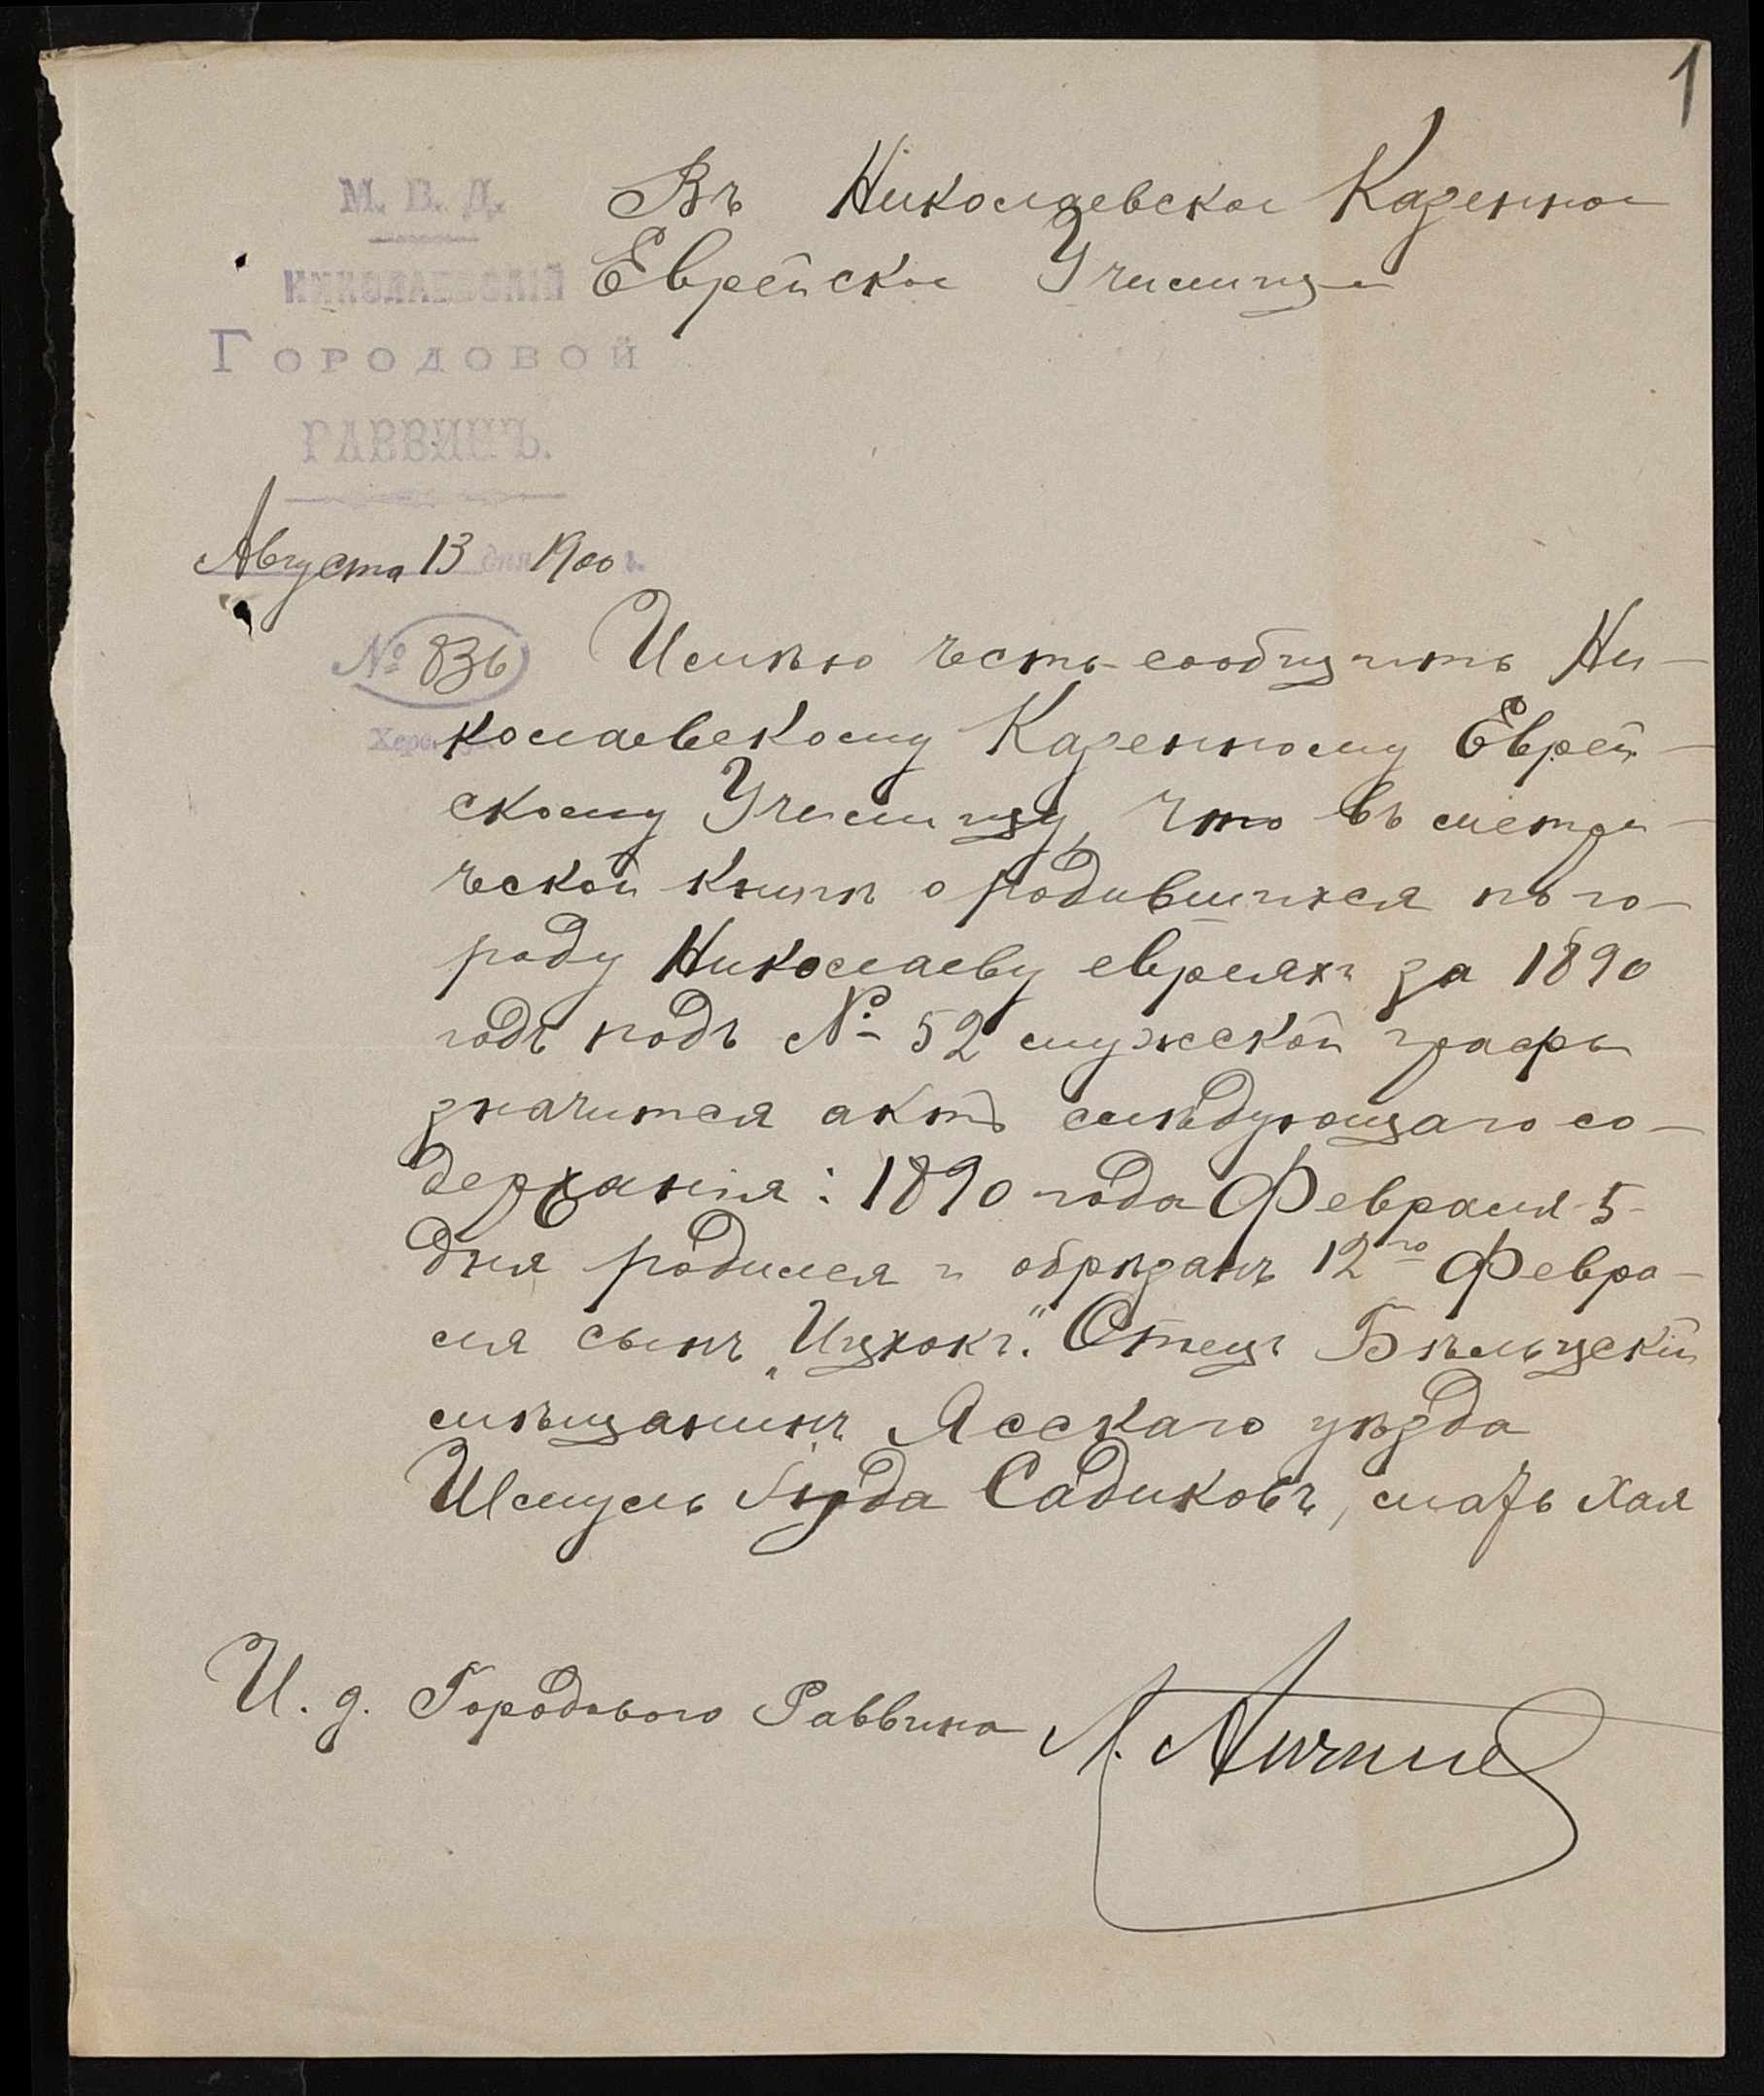 1
М. В. Д.
НИКОЛАЕВСКІЙ
ГОРОДОВОЙ
РАВВИНЪ.
Августа 13 дня 1900 г.
№ 836
Херс.
Въ Николаевское Казенное
Еврейское Училище
Имѣю честь сообщить Ни-
колаевскому Казенному Еврей-
скому Училищу, что въ метри-
ческой книгѣ о родившихся по го-
роду Николаеву евреяхъ за 1890
годъ подъ № 52 мужской графы
значится актъ слѣдующаго со-
держанія: 1890 года Февраля 5
дня родился и обрѣзанъ 12го Февра-
ля сынъ „Ицхокъ". Отецъ Бѣльцскій
мѣщанинъ Ясскаго уѣзда
Шмуль Іуда Садиковъ, мать Хая
И. д. Городового Раввина Л.